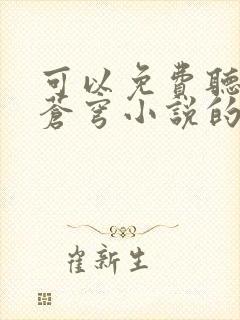 可以免費聽
蒼穹小說的
崔新生